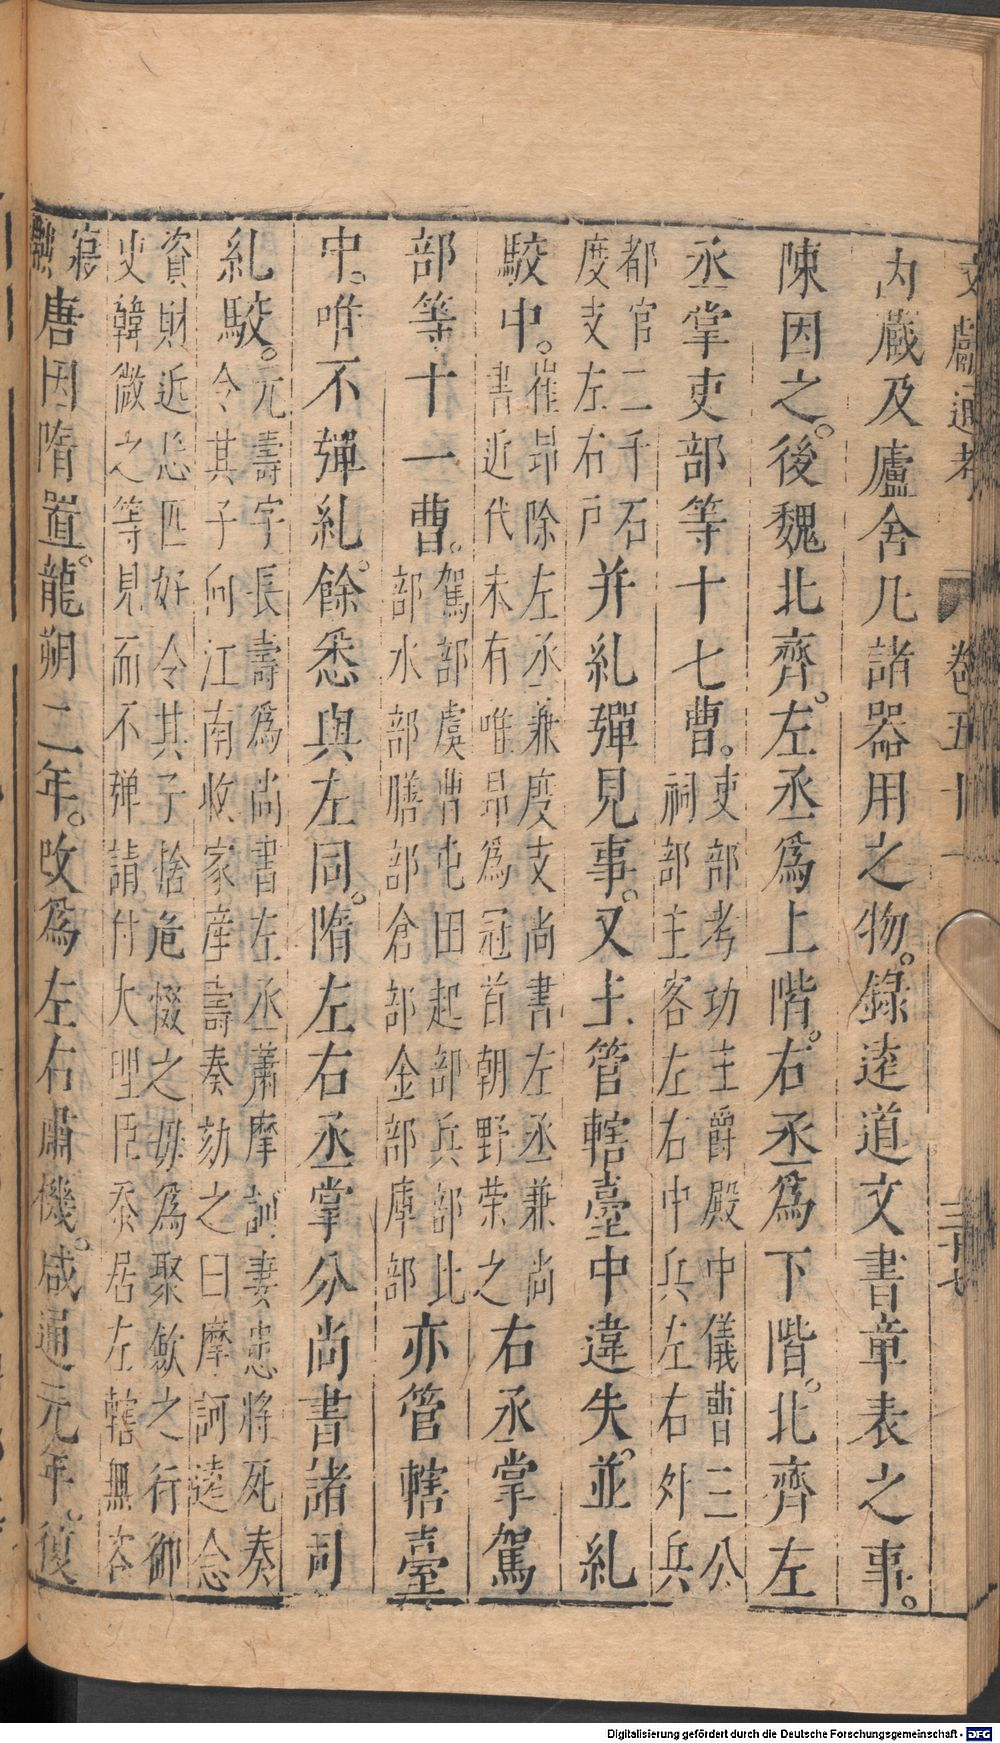 文獻通考 卷五十一 三十七
內藏及廬舍凡諸器用之物。錄遠道文書章表之事。
陳因之。後魏北齊。左丞爲上階。右丞爲下階。北齊左
丞掌吏部等十七曹。吏部考功主爵殿中儀曹三公
祠部主客左右中兵左右外兵
都官二千石
度支左右戶
并糺彈見事。又主管轄臺中違失。並糺
駮中。崔昻除左丞兼度支尚書左丞兼尚
書近代未有唯昻爲冠首朝野榮之
右丞掌駕
部等十一曹。駕部虞曹屯田起部兵部比
部水部膳部倉部金部庫部
亦管轄臺
中。唯不彈糺。餘悉與左同。隋左右丞掌分尚書諸司
糺駮。元壽字長壽爲尚書左丞蕭摩訶妻患將死奏
令其子向江南收家産壽奏劾之曰摩訶遠念
資財近忘匹好令其子捨危惙之母爲聚斂之行御
史韓微之等見而不彈請付大理臣忝居左轄無容
寢
默
唐因隋置。龍朔二年。改爲左右肅機。咸通元年。復
Digitalisierung gefördert durch die Deutsche Forschungsgemeinschaft - DFG